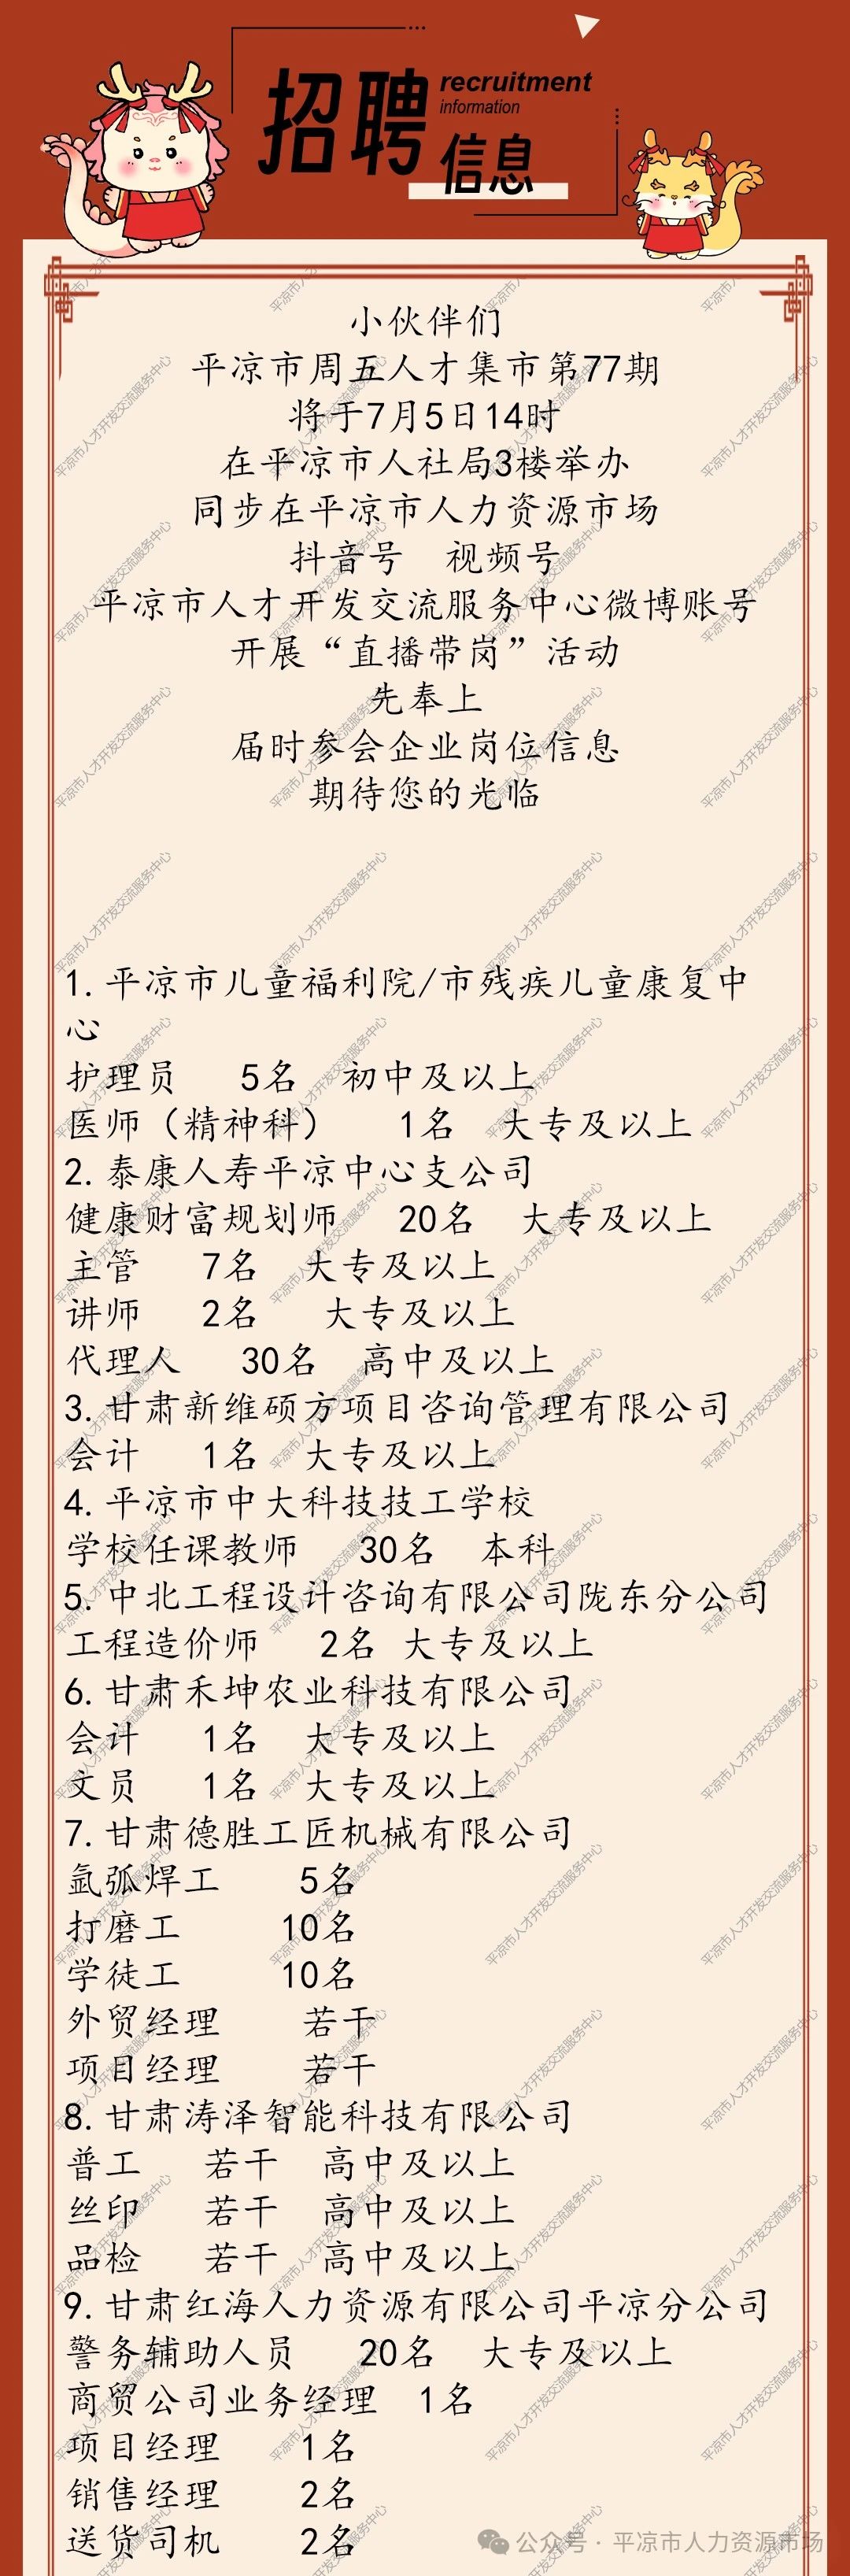 招聘
recruitment
information
信息
小伙伴们
平凉市周五人才集市第77期
将于7月5日14时
在平凉市人社局3楼举办
同步在平凉市人力资源市场
抖音号 视频号
平凉市人才开发交流服务中心微博账号
开展“直播带岗”活动
先奉上
届时参会企业岗位信息
期待您的光临
1.平凉市儿童福利院/市残疾儿童康复中
心
护理员 5名 初中及以上
医师（精神科） 1名 大专及以上
2.泰康人寿平凉中心支公司
健康财富规划师 20名 大专及以上
主管 7名 大专及以上
讲师 2名 大专及以上
代理人 30名 高中及以上
3.甘肃新维硕方项目咨询管理有限公司
会计 1名 大专及以上
4.平凉市中大科技技工学校
学校任课教师 30名 本科
5.中北工程设计咨询有限公司陇东分公司
工程造价师 2名 大专及以上
6.甘肃禾坤农业科技有限公司
会计 1名 大专及以上
文员 1名 大专及以上
7.甘肃德胜工匠机械有限公司
氩弧焊工 5名
打磨工 10名
学徒工 10名
外贸经理 若干
项目经理 若干
8.甘肃涛泽智能科技有限公司
普工 若干 高中及以上
丝印 若干 高中及以上
品检 若干 高中及以上
9.甘肃红海人力资源有限公司平凉分公司
警务辅助人员 20名 大专及以上
商贸公司业务经理 1名
项目经理 1名
销售经理 2名
送货司机 2名
公众号·平凉市人力资源市场
平凉市人才开发交流服务中心